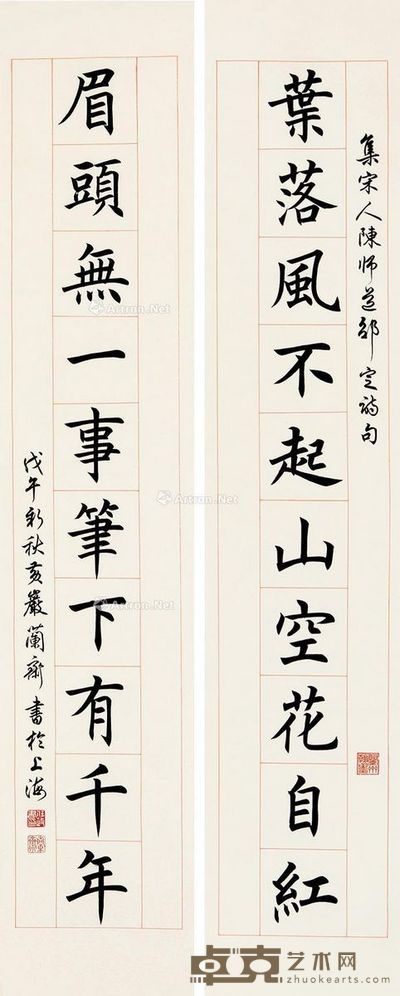 集宋人陳師道邵定詩句
葉落風不起山空花自紅
眉頭無一事筆下有千年
戊午新秋 書於上海
Artron.Net
Artron.Net
Artron.Net
Artron.Net
卓克艺术网
zhuokearts.com